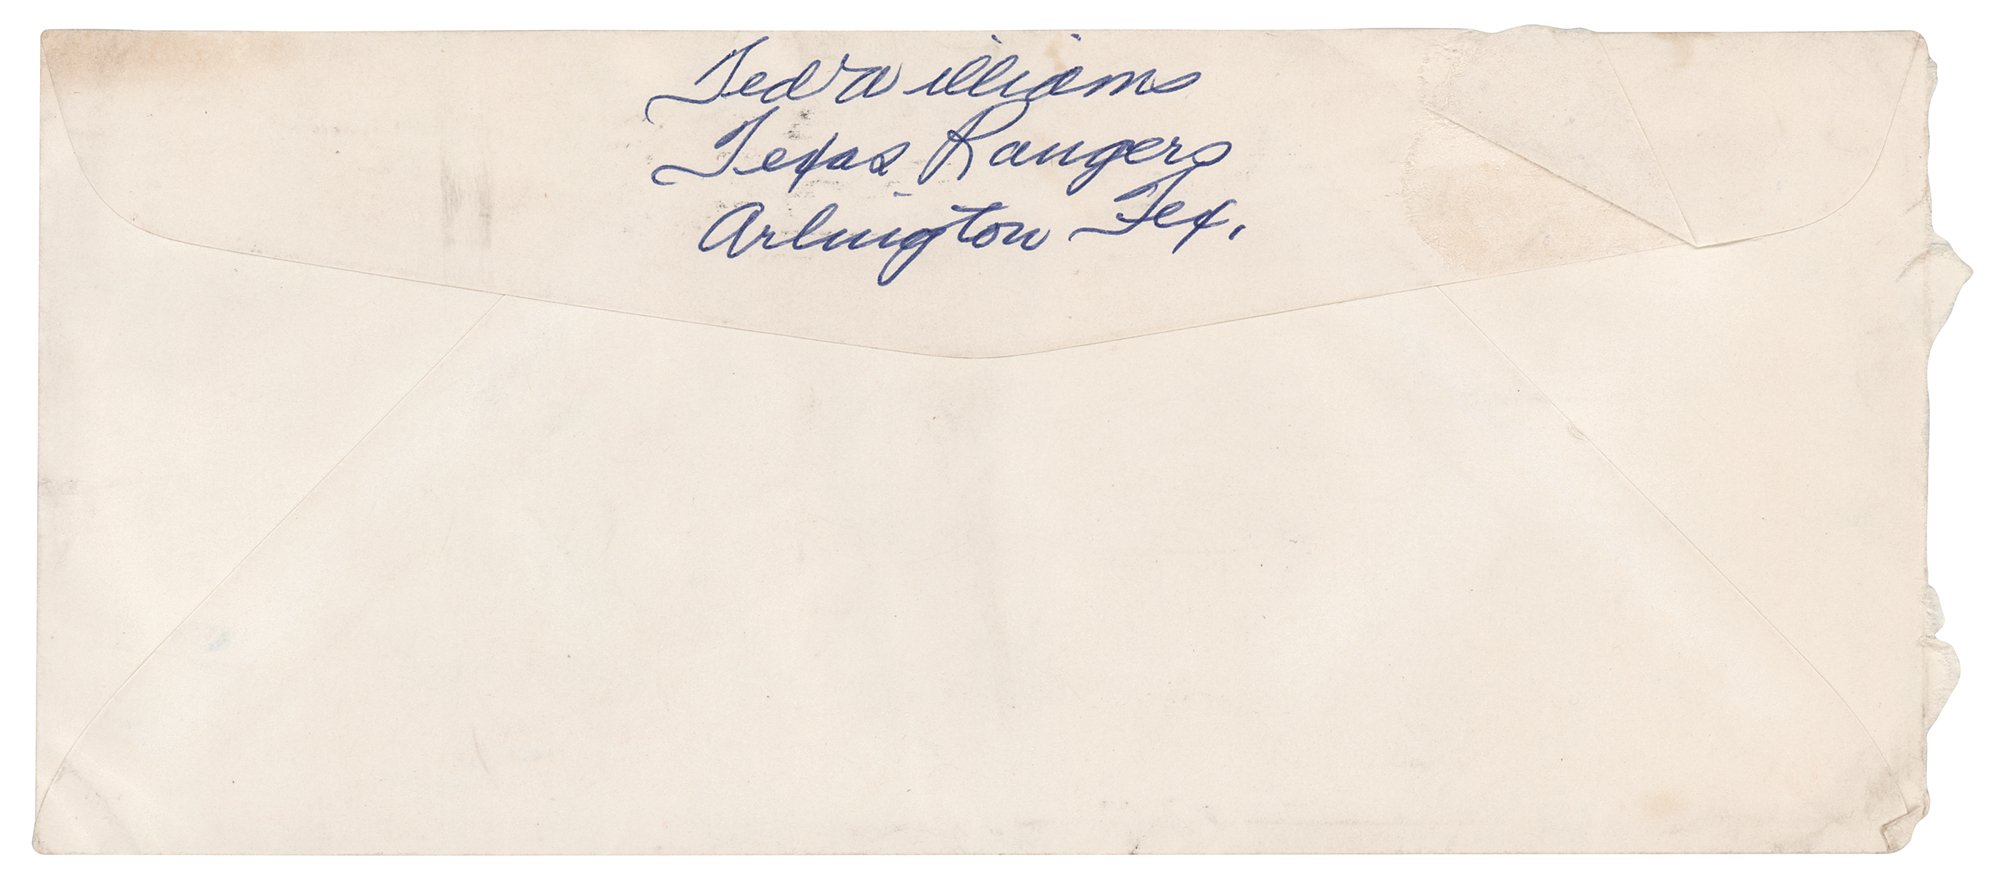 Ted Williams
Texas Rangers
Arlington Tex.